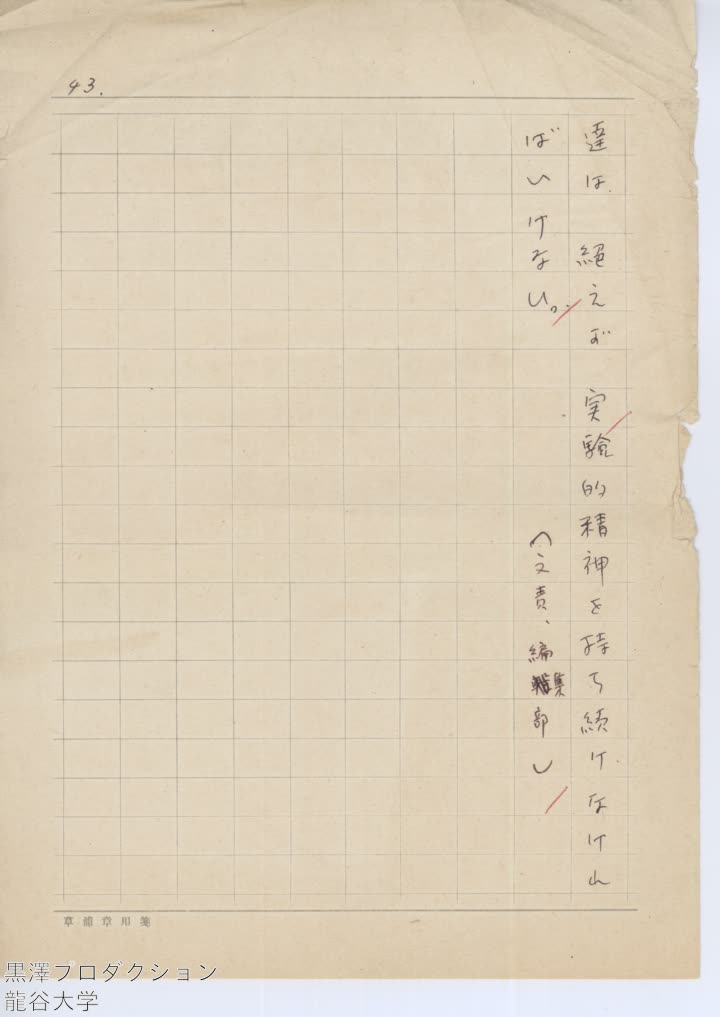 43.
達は 絶えず 実験的精神を持ち続けなけれ
ばいけない。
(文責、編集部)
草浦章用箋
黒澤プロダクション
龍谷大学